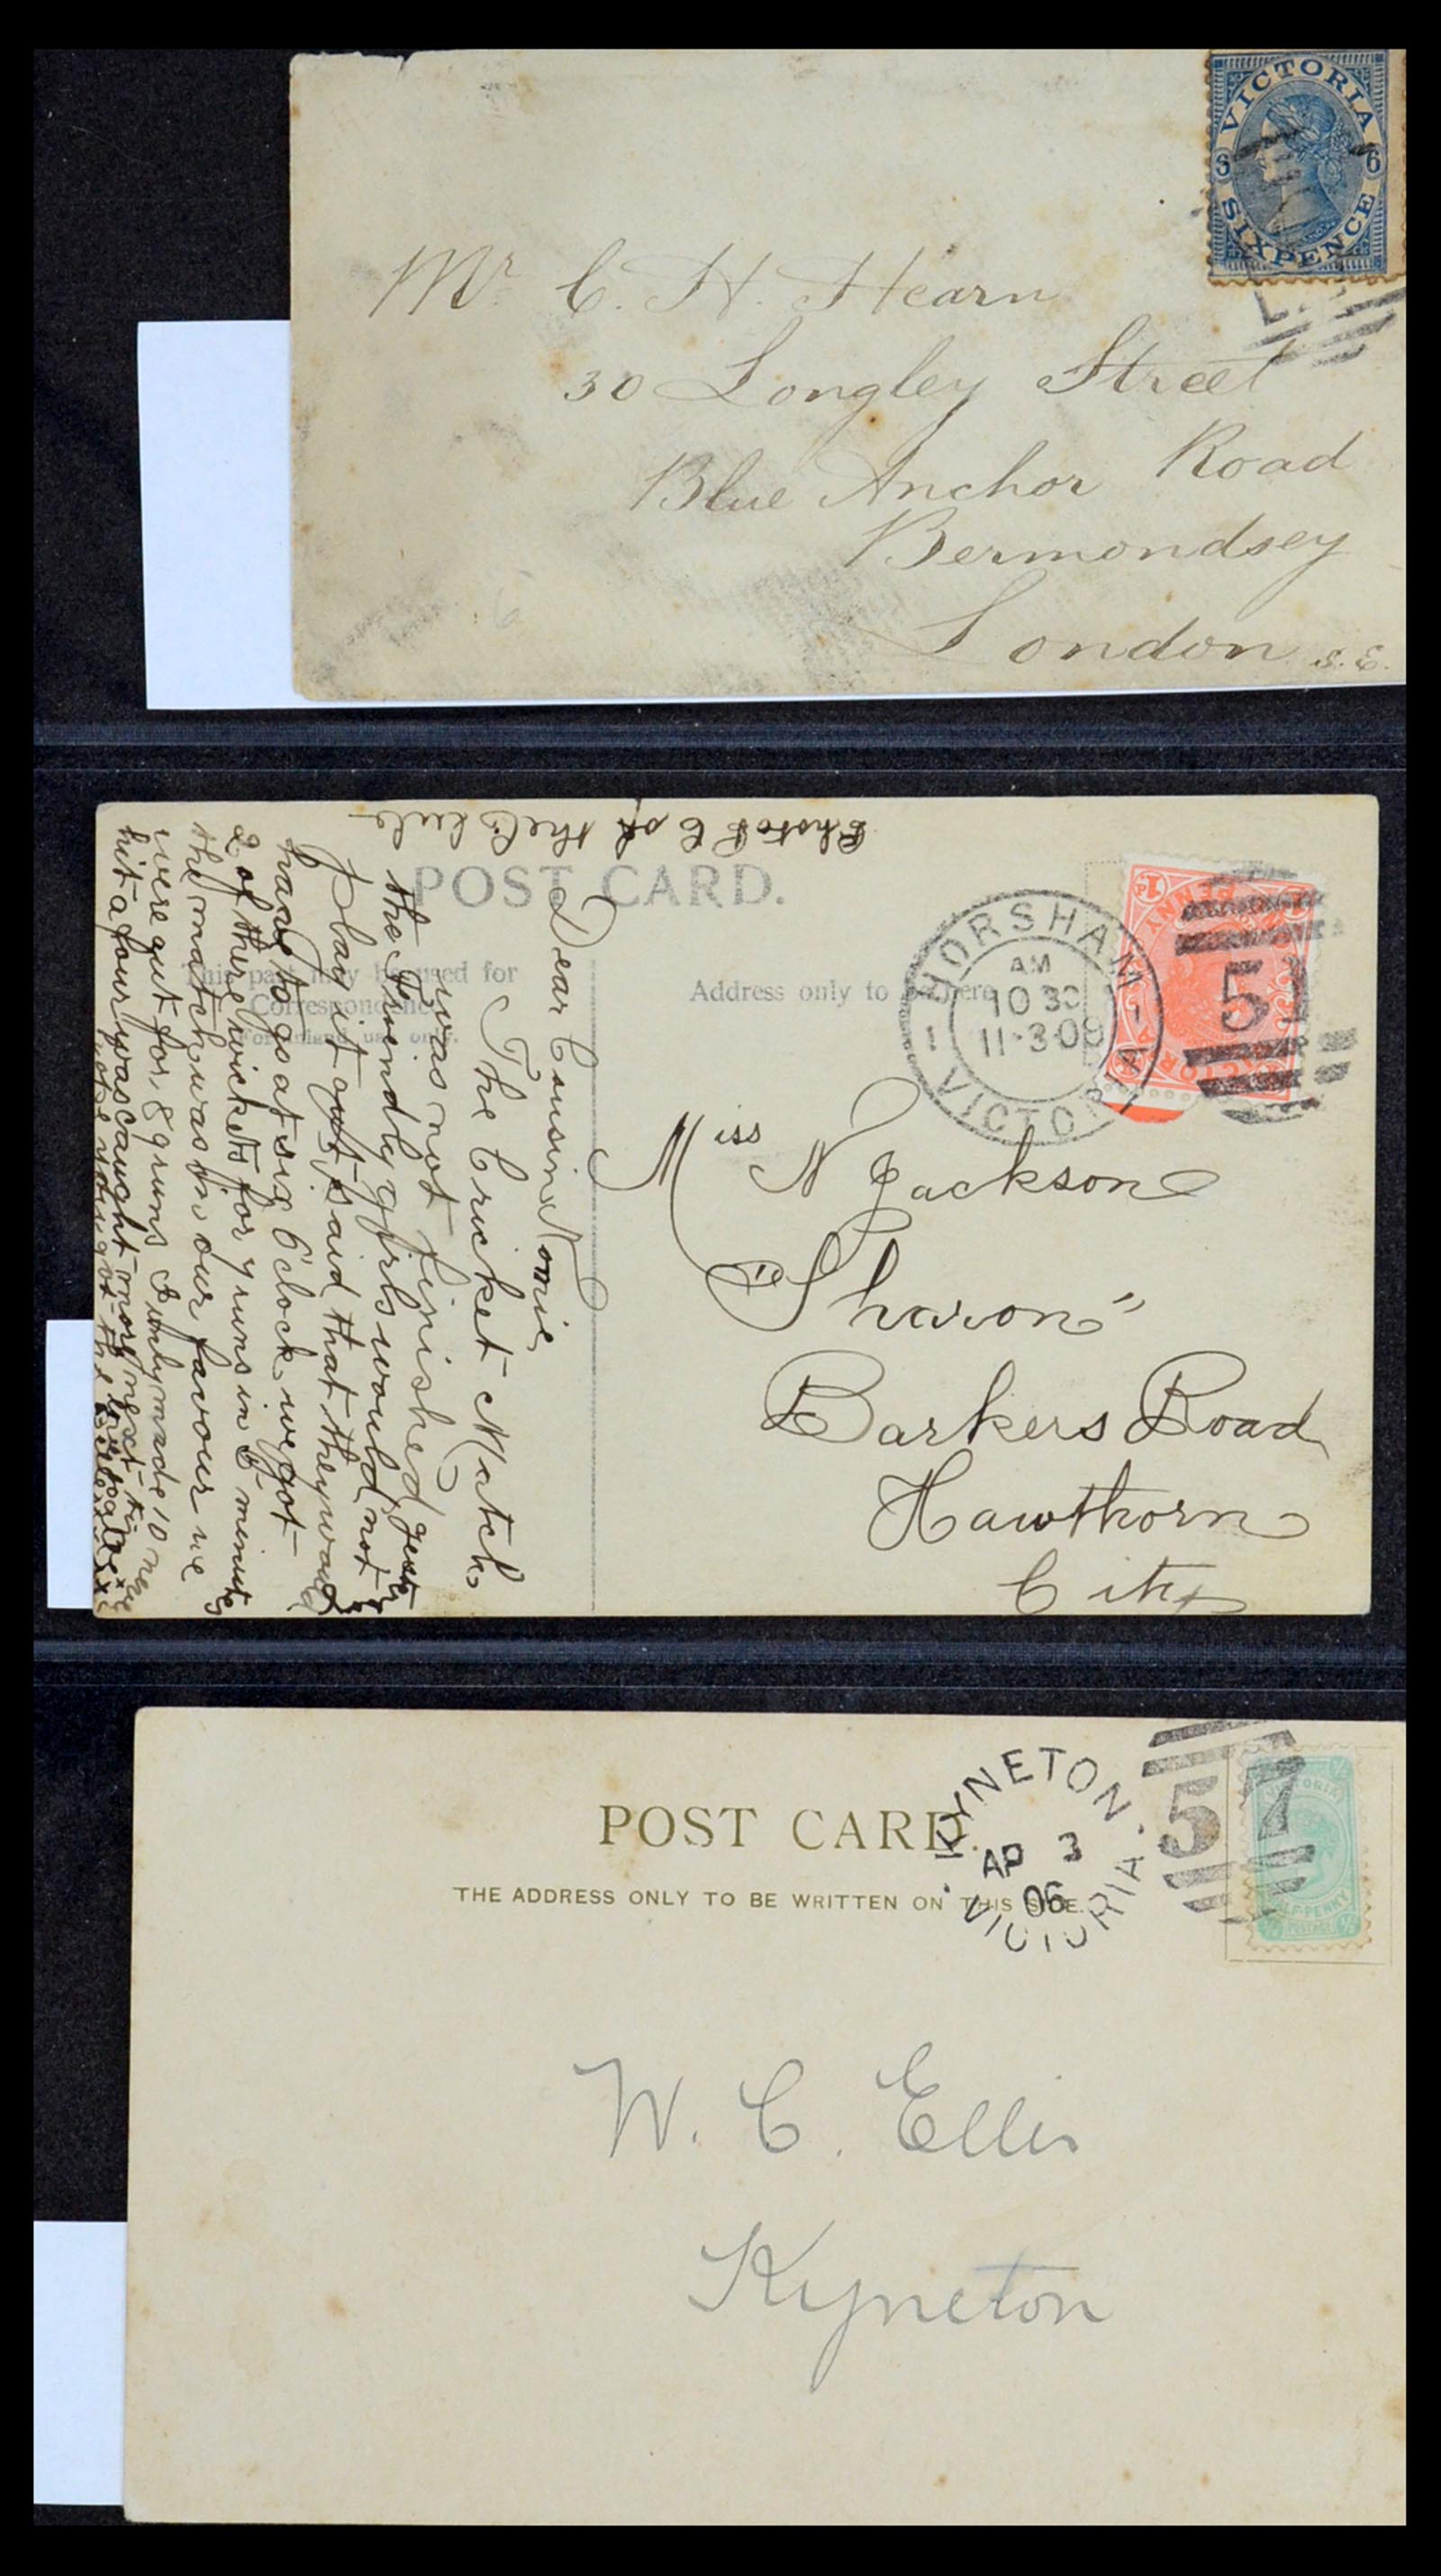 VICTORIA
6 6
SIXPENCE
Mr C. H. Hearn
30 Longley Street
Blue Anchor Road
Bermondsey
London S.E.
of the Club
POST CARD.
This part may be used for
Correspondence
For inland use only.
Address only to here
HORSHAM
AM
10 30
11·3·09
1 1
VICTORIA
57
PENNY
1P
Dear Cousin Nomie,
The Cricket Match
was not finished
the Friendly girls would not
play it out, said that they would
have to go at six O'clock, we got
2 of there wickets for 7 runs in 5 minutes
the match was in our favour we
were out for 89 runs I only made 10 runs
hit a four was caught more next time
Miss N Jackson
"Sharon"
Barkers Road
Hawthorn
City
POST CARD.
THE ADDRESS ONLY TO BE WRITTEN ON THIS SIDE.
KYNETON.
AP 3
06
VICTORIA
57
VICTORIA
HALFPENNY
POSTAGE
W. C. Ellis
Kyneton